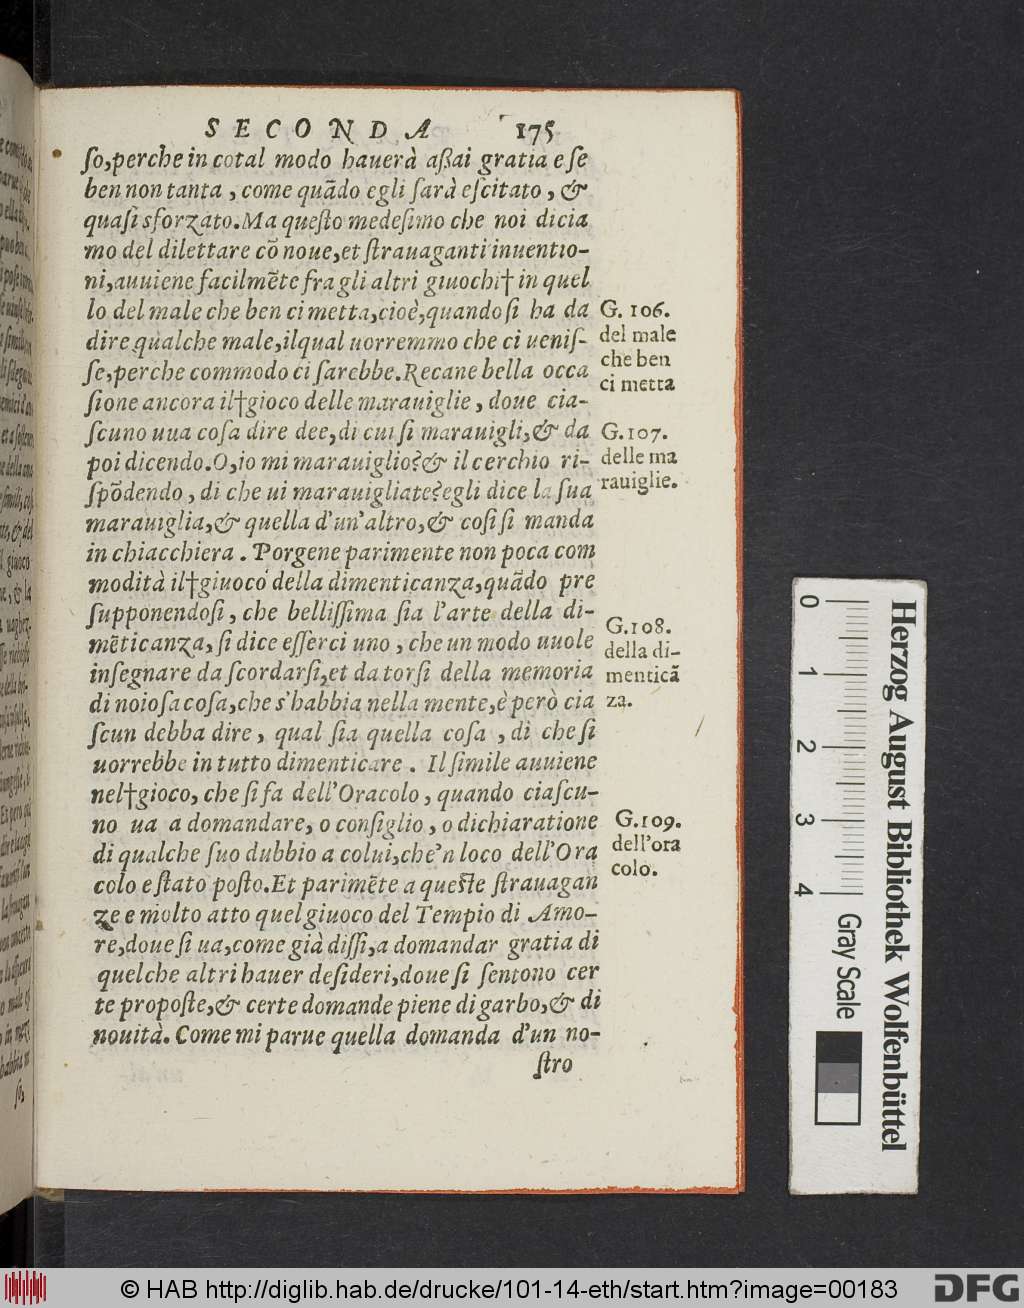 SECONDA 175
ſo,perche in cotal modo hauerà aßai gratia e ſe
ben non tanta , come quãdo egli ſarà eſcitato , &
quaſi sforzato.Ma queſto medeſimo che noi dicia
mo del dilettare cõ noue,et ſtrauaganti inuentio-
ni,auuiene facilmẽte fra gli altri giuochi† in quel
lo del male che ben ci metta,cioè,quando ſi ha da
dire qualche male,ilqual uorremmo che ci ueniſ-
ſe,perche commodo ci ſarebbe.Recane bella occa
ſione ancora il†gioco delle marauiglie , doue cia-
ſcuno uua coſa dire dee,di cui ſi marauigli,& da
poi dicendo.O,io mi marauiglio?& il cerchio ri-
ſpõdendo , di che ui marauigliate?egli dice la ſua
marauiglia,& quella d'un'altro,& coſi ſi manda
in chiacchiera . Porgene parimente non poca com
modità il†giuoco della dimenticanza,quãdo pre
ſupponendoſi , che belliſſima ſia l'arte della di-
mẽticanza, ſi dice eſſerci uno , che un modo uuole
inſegnare da ſcordarſi,et da torſi della memoria
di noioſa coſa,che s'habbia nella mente,è però cia
ſcun debba dire , qual ſia quella coſa , di che ſi
uorrebbe in tutto dimenticare . Il ſimile auuiene
nel†gioco, che ſi fa dell'Oracolo , quando ciaſcu-
no ua a domandare, o conſiglio , o dichiaratione
di qualche ſuo dubbio a colui,che'n loco dell'Ora
colo e ſtato poſto.Et parimẽte a queſte ſtrauagan
ze e molto atto quel giuoco del Tempio di Amo-
re,doue ſi ua,come già diſſi,a domandar gratia di
quelche altri hauer deſideri,doue ſi ſentono cer
te propoſte,& certe domande piene di garbo,& di
nouità. Come mi parue quella domanda d'un no-
ſtro
G. 106.
del male
che ben
ci metta
G.107.
delle ma
rauiglie.
G.108.
della di-
menticã
za.
G.109.
dell'ora
colo.
0 1 2 3 4
Herzog August Bibliothek Wolfenbüttel
Gray Scale
© HAB http://diglib.hab.de/drucke/101-14-eth/start.htm?image=00183
DFG